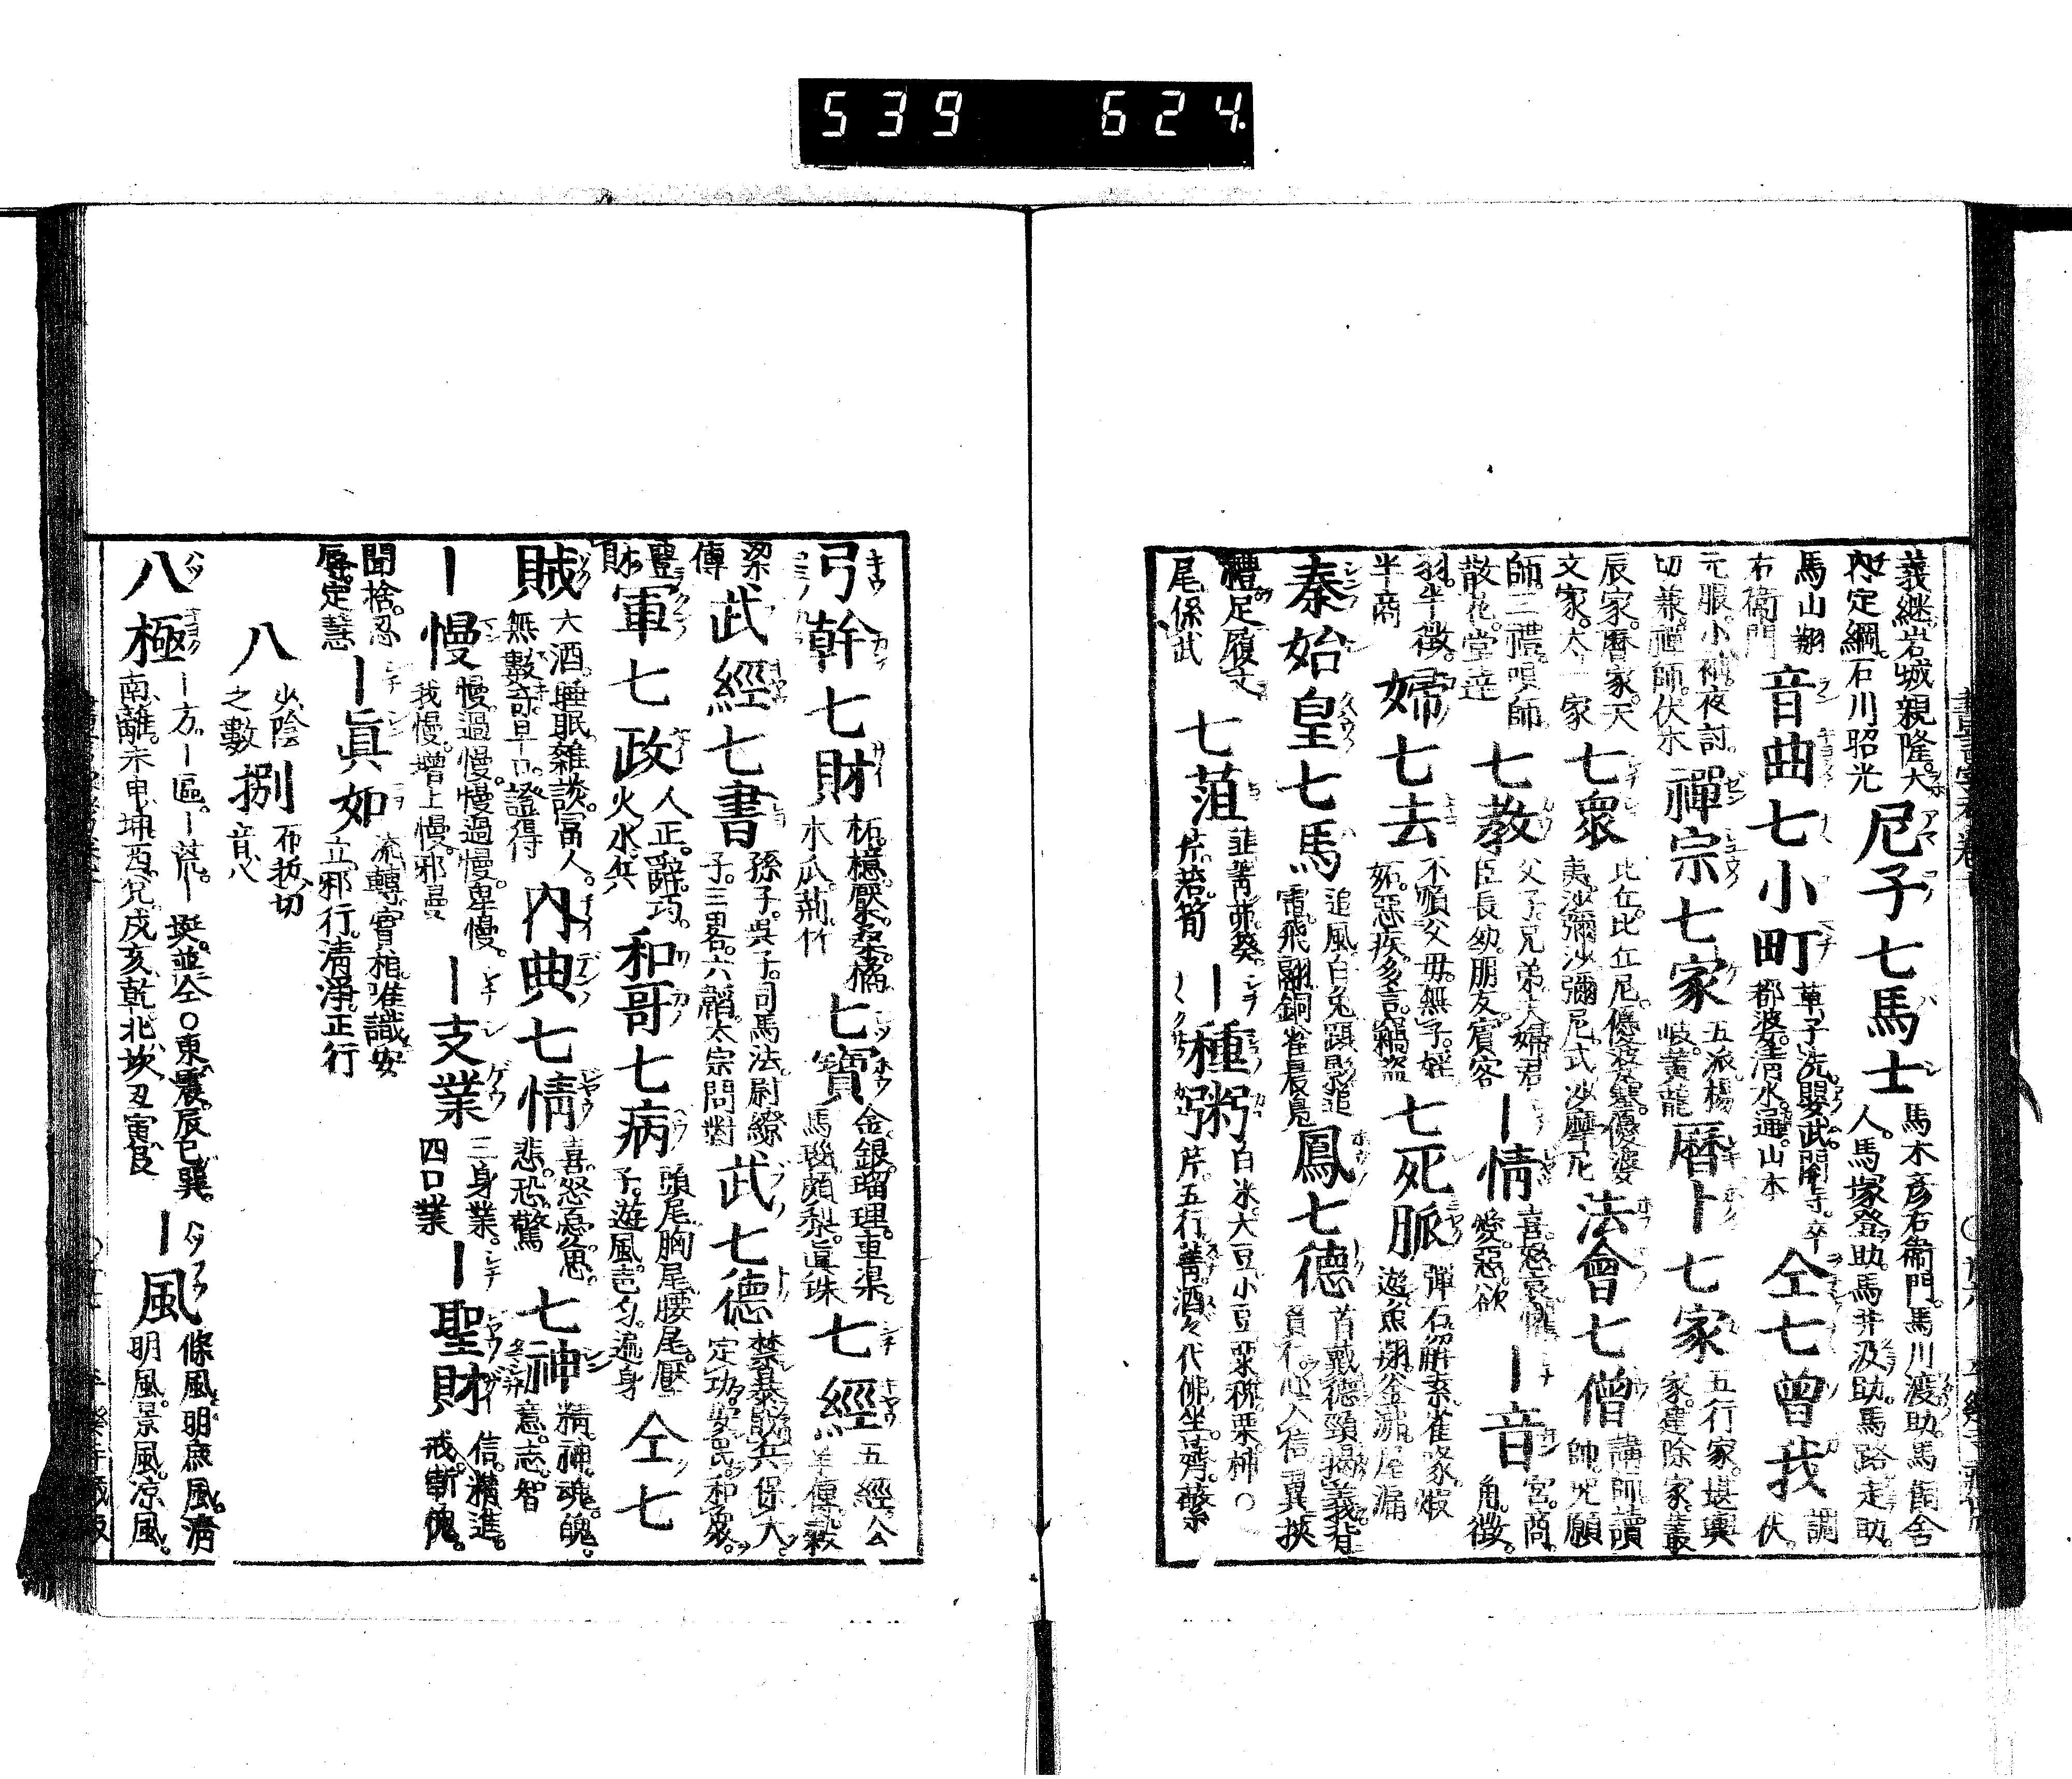 539 624
義継岩城親隆大
内定綱石川昭光
尼子七馬士
馬木彦右衞門馬川渡助馬飼舍
人馬塚登助馬井汲助馬路走助
馬山翔
右衞門
音曲七小町
草子洗鸚武關寺卒
都婆清水通山本
仝七曾我
調
伏
元服小袖夜討
切兼禪師伏木
禪宗七家
五派楊
岐黄龍
暦卜七家
五行家堪輿
家建除家叢
辰家暦家天
文家太一家
七衆
比丘比丘尼優婆塞優婆
夷沙彌沙彌尼式沙摩尼
法會七僧
講師讀
師咒願
師三禮唄師
散花堂達
七教
父子兄弟夫婦君
臣長幼朋友賓客
〡情
喜怒哀懼
愛惡欲
〡音
宮商
角徵
羽半徵
半商
婦七去
不順父母無子婬
妬惡疾多言竊盜
七死脈
彈石解索雀啄
遊魚翔釜沸屋漏
秦始皇七馬
追風白兔躡影追
電飛翮銅雀晨鳧
鳳七德
首戴德頸揭義背
負仁心入信翼挾
禮足履文
尾係武
七菹
韭菁茆葵
芹菭筍
〡種粥
白米大豆小豆粟
芹五行菁酒代佛坐薺蘩
弓幹七財
柘檍檿桑橘
木瓜荊竹
七寳
金銀瑠理車渠
馬瑙頗梨眞珠
七經
五經公
羊傳穀
梁
傳
武經七書
孫子呉子司馬法尉繚
子三畧六韜太宗問對
武七德
禁暴戢兵保大
定功安民和衆
豐
財
軍七政
人正辭巧
火水兵
和哥七病
頭尾胸尾腰尾黶
子遊風遍身
仝七
賊
大酒睡眠雜談冨人
無數竒早口證得
内典七情
喜怒憂思
悲恐驚
七神
精神魂魄
意志智
〡慢
慢過慢慢過慢卑慢
我慢增上慢邪慢
〡支業
三身業
四口業
〡聖財
信精進
戒慚愧
聞捨忍
辱定慧
〡眞如
流轉實相唯識安
立邪行清淨正行
八
少陰
之數
捌
布拔切
音八
八極
〡方〡區〡荒〡埏並仝○東震辰巳巽
南離未申坤西兌戌亥乾北坎丑寅艮
〡風
條風明庶風清
明風景風凉風